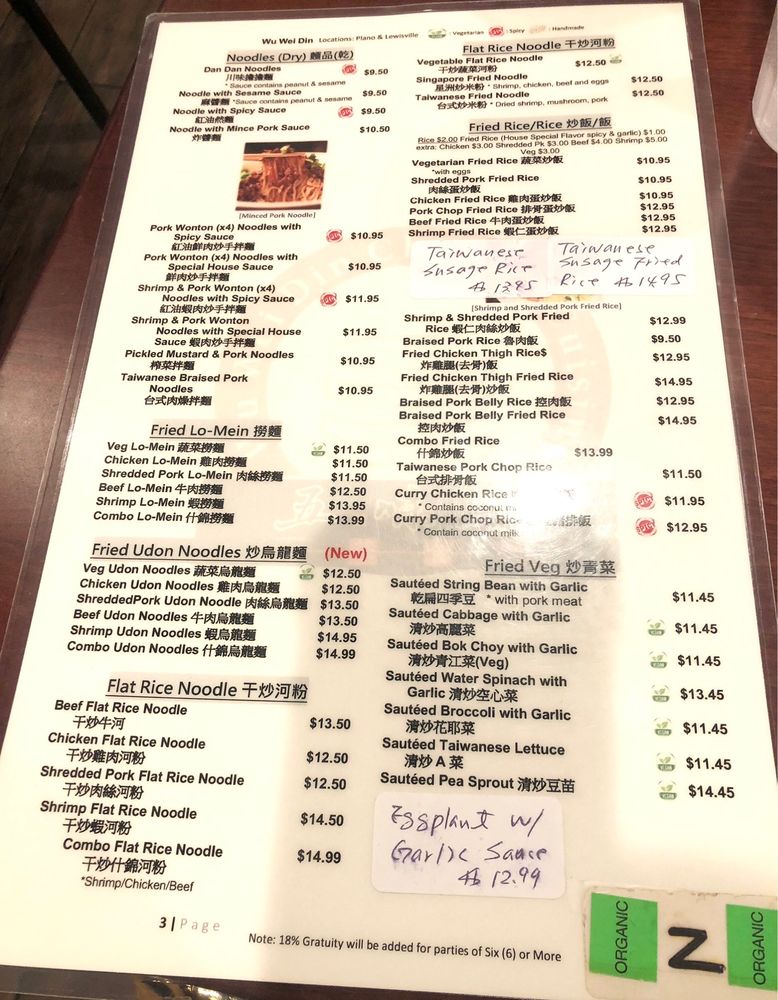 Wu Wei Din Locations: Plano & Lewisville : Vegetarian : Spicy : Handmade
Noodles (Dry) 麵品(乾)
Dan Dan Noodles $9.50
川味擔擔麵
* Sauce contains peanut & sesame
Noodle with Sesame Sauce $9.50
麻醬麵 *Sauce contains peanut & sesame
Noodle with Spicy Sauce $9.50
紅油然麵
Noodle with Mince Pork Sauce $10.50
炸醬麵
[Minced Pork Noodle]
Pork Wonton (x4) Noodles with
Spicy Sauce $10.95
紅油鮮肉抄手拌麵
Pork Wonton (x4) Noodles with
Special House Sauce $10.95
鮮肉抄手拌麵
Shrimp & Pork Wonton (x4)
Noodles with Spicy Sauce $11.95
紅油蝦肉抄手拌麵
Shrimp & Pork Wonton
Noodles with Special House $11.95
Sauce 蝦肉抄手拌麵
Pickled Mustard & Pork Noodles $10.95
榨菜拌麵
Taiwanese Braised Pork
Noodles $10.95
台式肉燥拌麵
Fried Lo-Mein 撈麵
Veg Lo-Mein 蔬菜撈麵 $11.50
Chicken Lo-Mein 雞肉撈麵 $11.50
Shredded Pork Lo-Mein 肉絲撈麵 $11.50
Beef Lo-Mein 牛肉撈麵 $12.50
Shrimp Lo-Mein 蝦撈麵 $13.95
Combo Lo-Mein 什錦撈麵 $13.99
Fried Udon Noodles 炒烏龍麵 (New)
Veg Udon Noodles 蔬菜烏龍麵 $12.50
Chicken Udon Noodles 雞肉烏龍麵 $12.50
ShreddedPork Udon Noodle 肉絲烏龍麵 $13.50
Beef Udon Noodles 牛肉烏龍麵 $13.50
Shrimp Udon Noodles 蝦烏龍麵 $14.95
Combo Udon Noodles 什錦烏龍麵 $14.99
Flat Rice Noodle 干炒河粉
Beef Flat Rice Noodle
干炒牛河 $13.50
Chicken Flat Rice Noodle
干炒雞肉河粉 $12.50
Shredded Pork Flat Rice Noodle $12.50
干炒肉絲河粉
Shrimp Flat Rice Noodle $14.50
干炒蝦河粉
Combo Flat Rice Noodle $14.99
干炒什錦河粉
*Shrimp/Chicken/Beef
Flat Rice Noodle 干炒河粉
Vegetable Flat Rice Noodle $12.50
干炒蔬菜河粉
Singapore Fried Noodle $12.50
星洲炒米粉 * Shrimp, chicken, beef and eggs
Taiwanese Fried Noodle $12.50
台式炒米粉 * Dried shrimp, mushroom, pork
Fried Rice/Rice 炒飯/飯
Rice $2.00 Fried Rice (House Special Flavor spicy & garlic) $1.00
extra: Chicken $3.00 Shredded Pk $3.00 Beef $4.00 Shrimp $5.00
Veg $3.00
Vegetarian Fried Rice 蔬菜炒飯 $10.95
*with eggs
Shredded Pork Fried Rice $10.95
肉絲蛋炒飯
Chicken Fried Rice 雞肉蛋炒飯 $10.95
Pork Chop Fried Rice 排骨蛋炒飯 $12.95
Beef Fried Rice 牛肉蛋炒飯 $12.95
Shrimp Fried Rice 蝦仁蛋炒飯 $12.95
Taiwanese
Susage Rice
$ 13.95
Taiwanese
Susage Fried
Rice $ 14.95
[Shrimp and Shredded Pork Fried Rice]
Shrimp & Shredded Pork Fried $12.99
Rice 蝦仁肉絲炒飯
Braised Pork Rice 魯肉飯 $9.50
Fried Chicken Thigh Rice$ $12.95
炸雞腿(去骨)飯
Fried Chicken Thigh Fried Rice $14.95
炸雞腿(去骨)炒飯
Braised Pork Belly Rice 控肉飯 $12.95
Braised Pork Belly Fried Rice $14.95
控肉炒飯
Combo Fried Rice
什錦炒飯 $13.99
Taiwanese Pork Chop Rice $11.50
台式排骨飯
Curry Chicken Rice $11.95
* Contains coconut
Curry Pork Chop Rice 排飯 $12.95
* Contain coconut milk
Fried Veg 炒青菜
Sautéed String Bean with Garlic $11.45
乾扁四季豆 * with pork meat
Sautéed Cabbage with Garlic $11.45
清炒高麗菜
Sautéed Bok Choy with Garlic $11.45
清炒青江菜(Veg)
Sautéed Water Spinach with
Garlic 清炒空心菜 $13.45
Sautéed Broccoli with Garlic $11.45
清炒花耶菜
Sautéed Taiwanese Lettuce
清炒 A 菜 $11.45
Sautéed Pea Sprout 清炒豆苗 $14.45
Eggplant w/
Garlic Sauce
$ 12.99
3 | Page
Note: 18% Gratuity will be added for parties of Six (6) or More
ORGANIC
N
ORGANIC